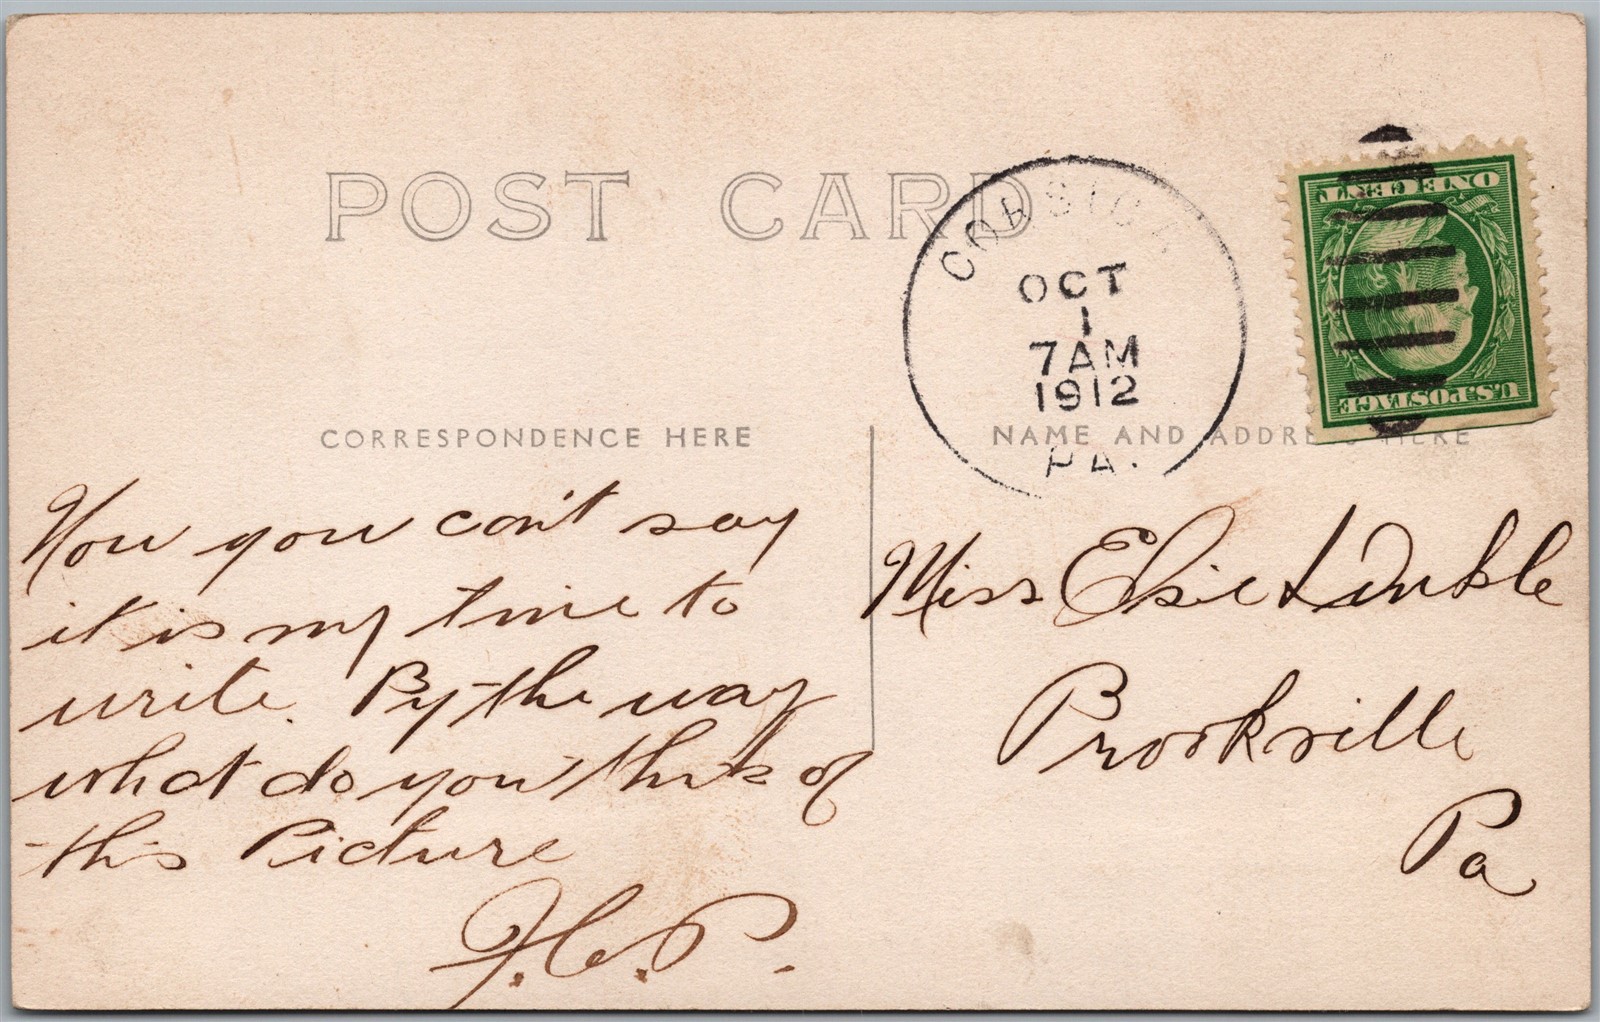 POST CARD
CORSICA
OCT
1
7 AM
1912
PA.
ONE CENT
U.S. POSTAGE
CORRESPONDENCE HERE
NAME AND ADDRESS HERE
Now you can't say
it is my time to
write. By the way
what do you think of
this Picture
F.C.P.
Miss Elsie
Brookville
Pa